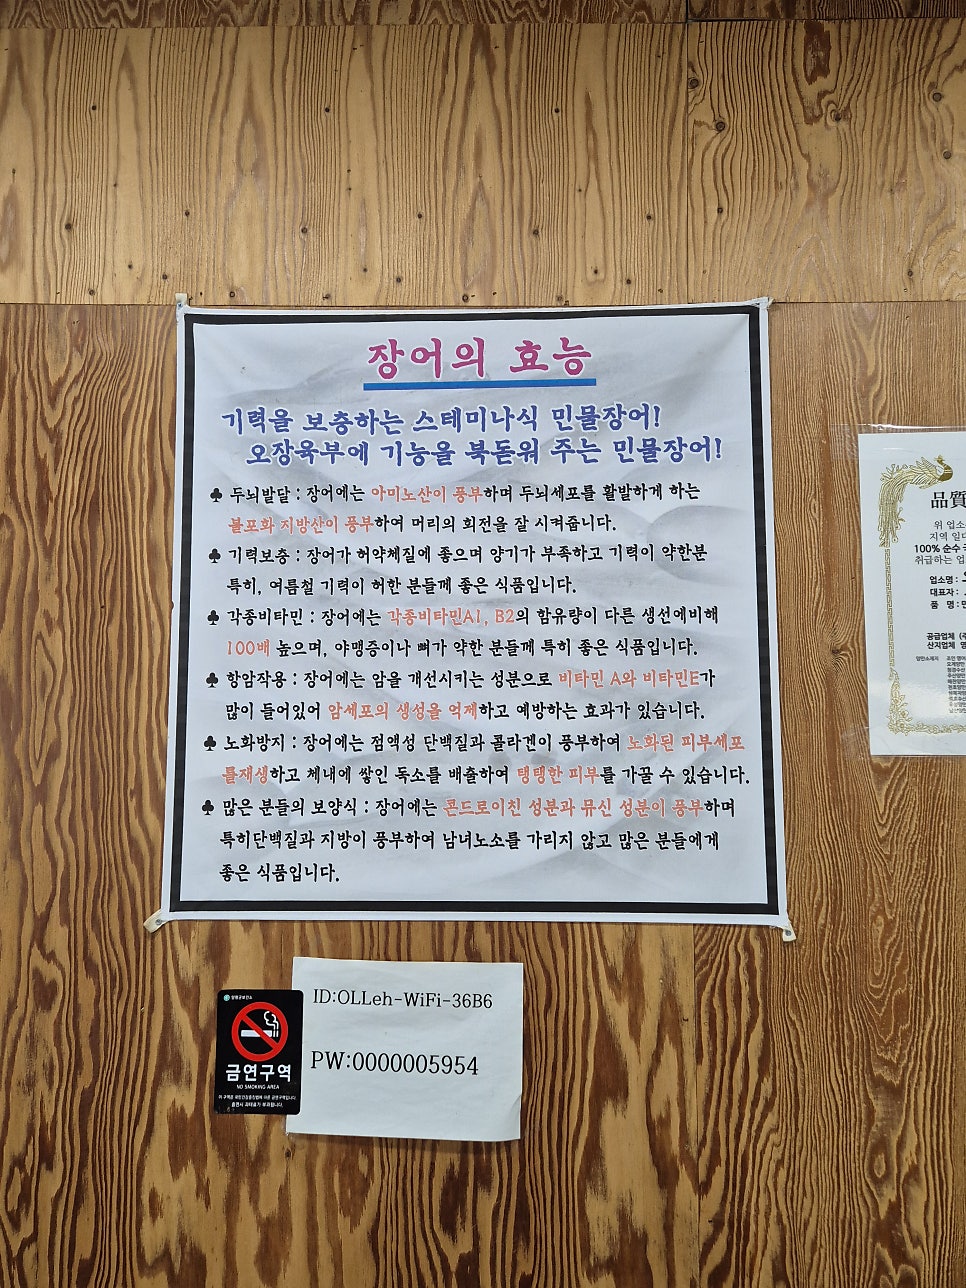 장어의 효능
기력을 보충하는 스테미나식 민물장어!
오장육부에 기능을 북돋워 주는 민물장어!
♣ 두뇌발달 : 장어에는 아미노산이 풍부하며 두뇌세포를 활발하게 하는
불포화 지방산이 풍부하여 머리의 회전을 잘 시켜줍니다.
♣ 기력보충 : 장어가 허약체질에 좋으며 양기가 부족하고 기력이 약한분
특히, 여름철 기력이 허한 분들께 좋은 식품입니다.
♣ 각종비타민 : 장어에는 각종비타민A1, B2의 함유량이 다른 생선에비해
100배 높으며, 야맹증이나 뼈가 약한 분들께 특히 좋은 식품입니다.
♣ 항암작용 : 장어에는 암을 개선시키는 성분으로 비타민 A와 비타민E가
많이 들어있어 암세포의 생성을 억제하고 예방하는 효과가 있습니다.
♣ 노화방지 : 장어에는 점액성 단백질과 콜라겐이 풍부하여 노화된 피부세포
를재생하고 체내에 쌓인 독소를 배출하여 탱탱한 피부를 가꿀 수 있습니다.
♣ 많은 분들의 보양식 : 장어에는 콘드로이친 성분과 뮤신 성분이 풍부하며
특히단백질과 지방이 풍부하여 남녀노소를 가리지 않고 많은 분들에게
좋은 식품입니다.
品質
위 업소
지역 일대
100% 순수
취급하는 업
업소명 :
대표자 :
품 명 :
공급업체
산지업체
ID:OLLeh-WiFi-36B6
PW:0000005954
금연구역
NO SMOKING AREA
이 구역은 국민건강증진법에 따른 금연구역입니다.
흡연시 과태료가 부과됩니다.